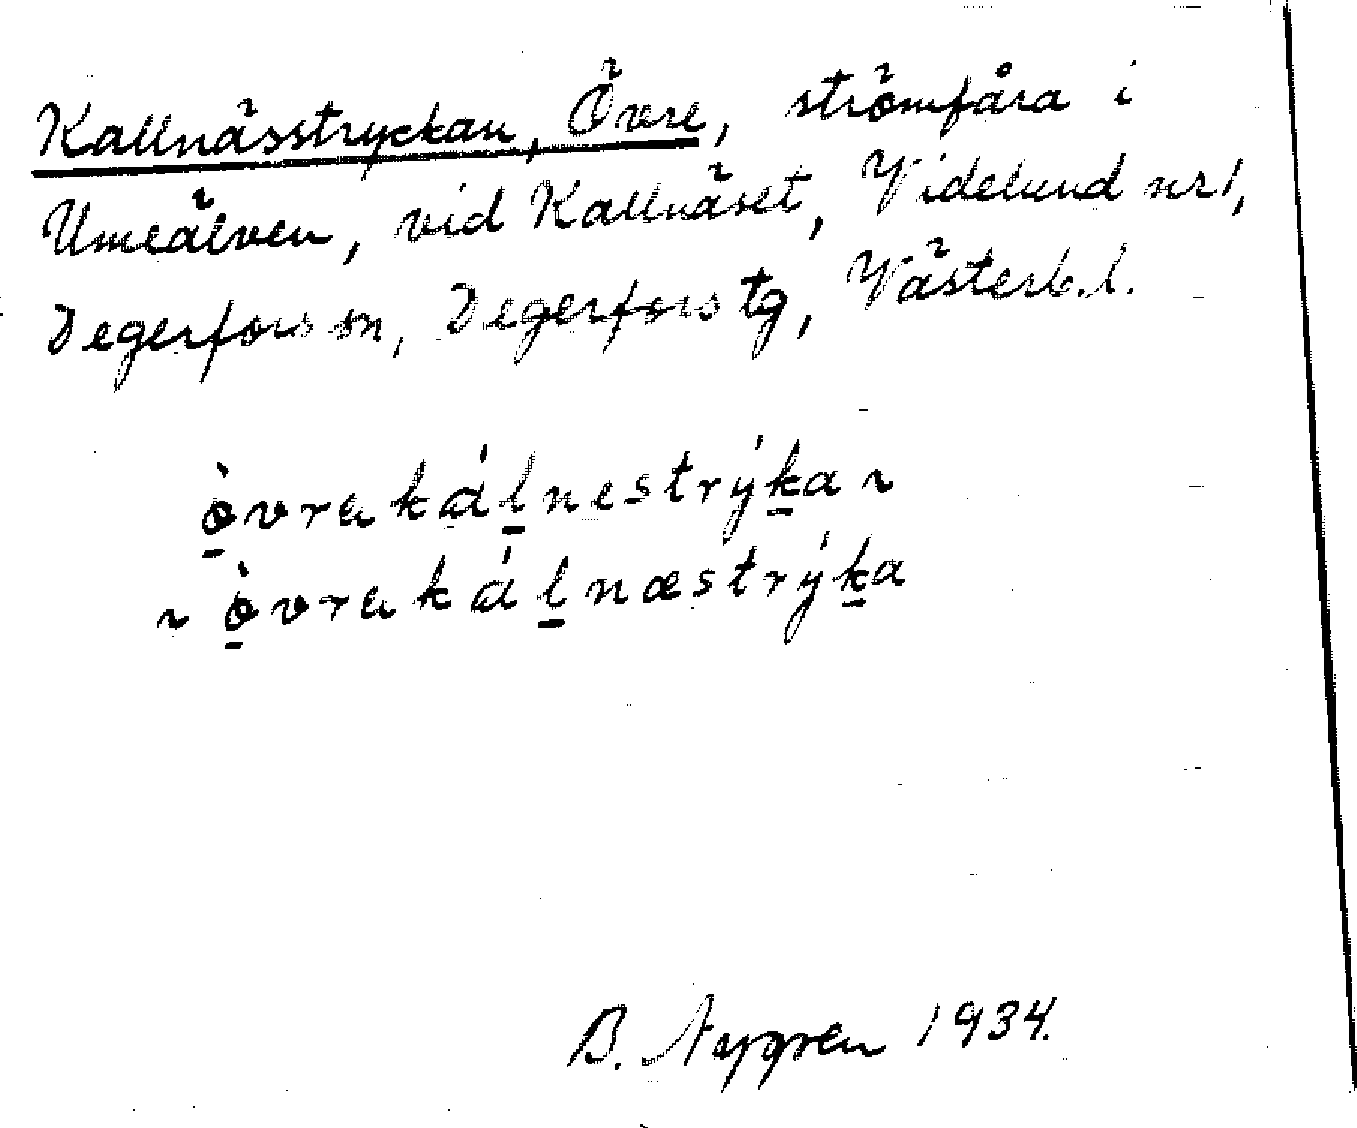 Kallnässtryckan, Övre, strömfåra i
Umeälven, vid Kallnäset, Videlund nr 1,
Degerfors sn, Degerfors tg, Västerb. l.
ò̱vra káḻnestrýḵa ~
~ ò̱vra káḻnæstrýḵa
B. Nygren 1934.